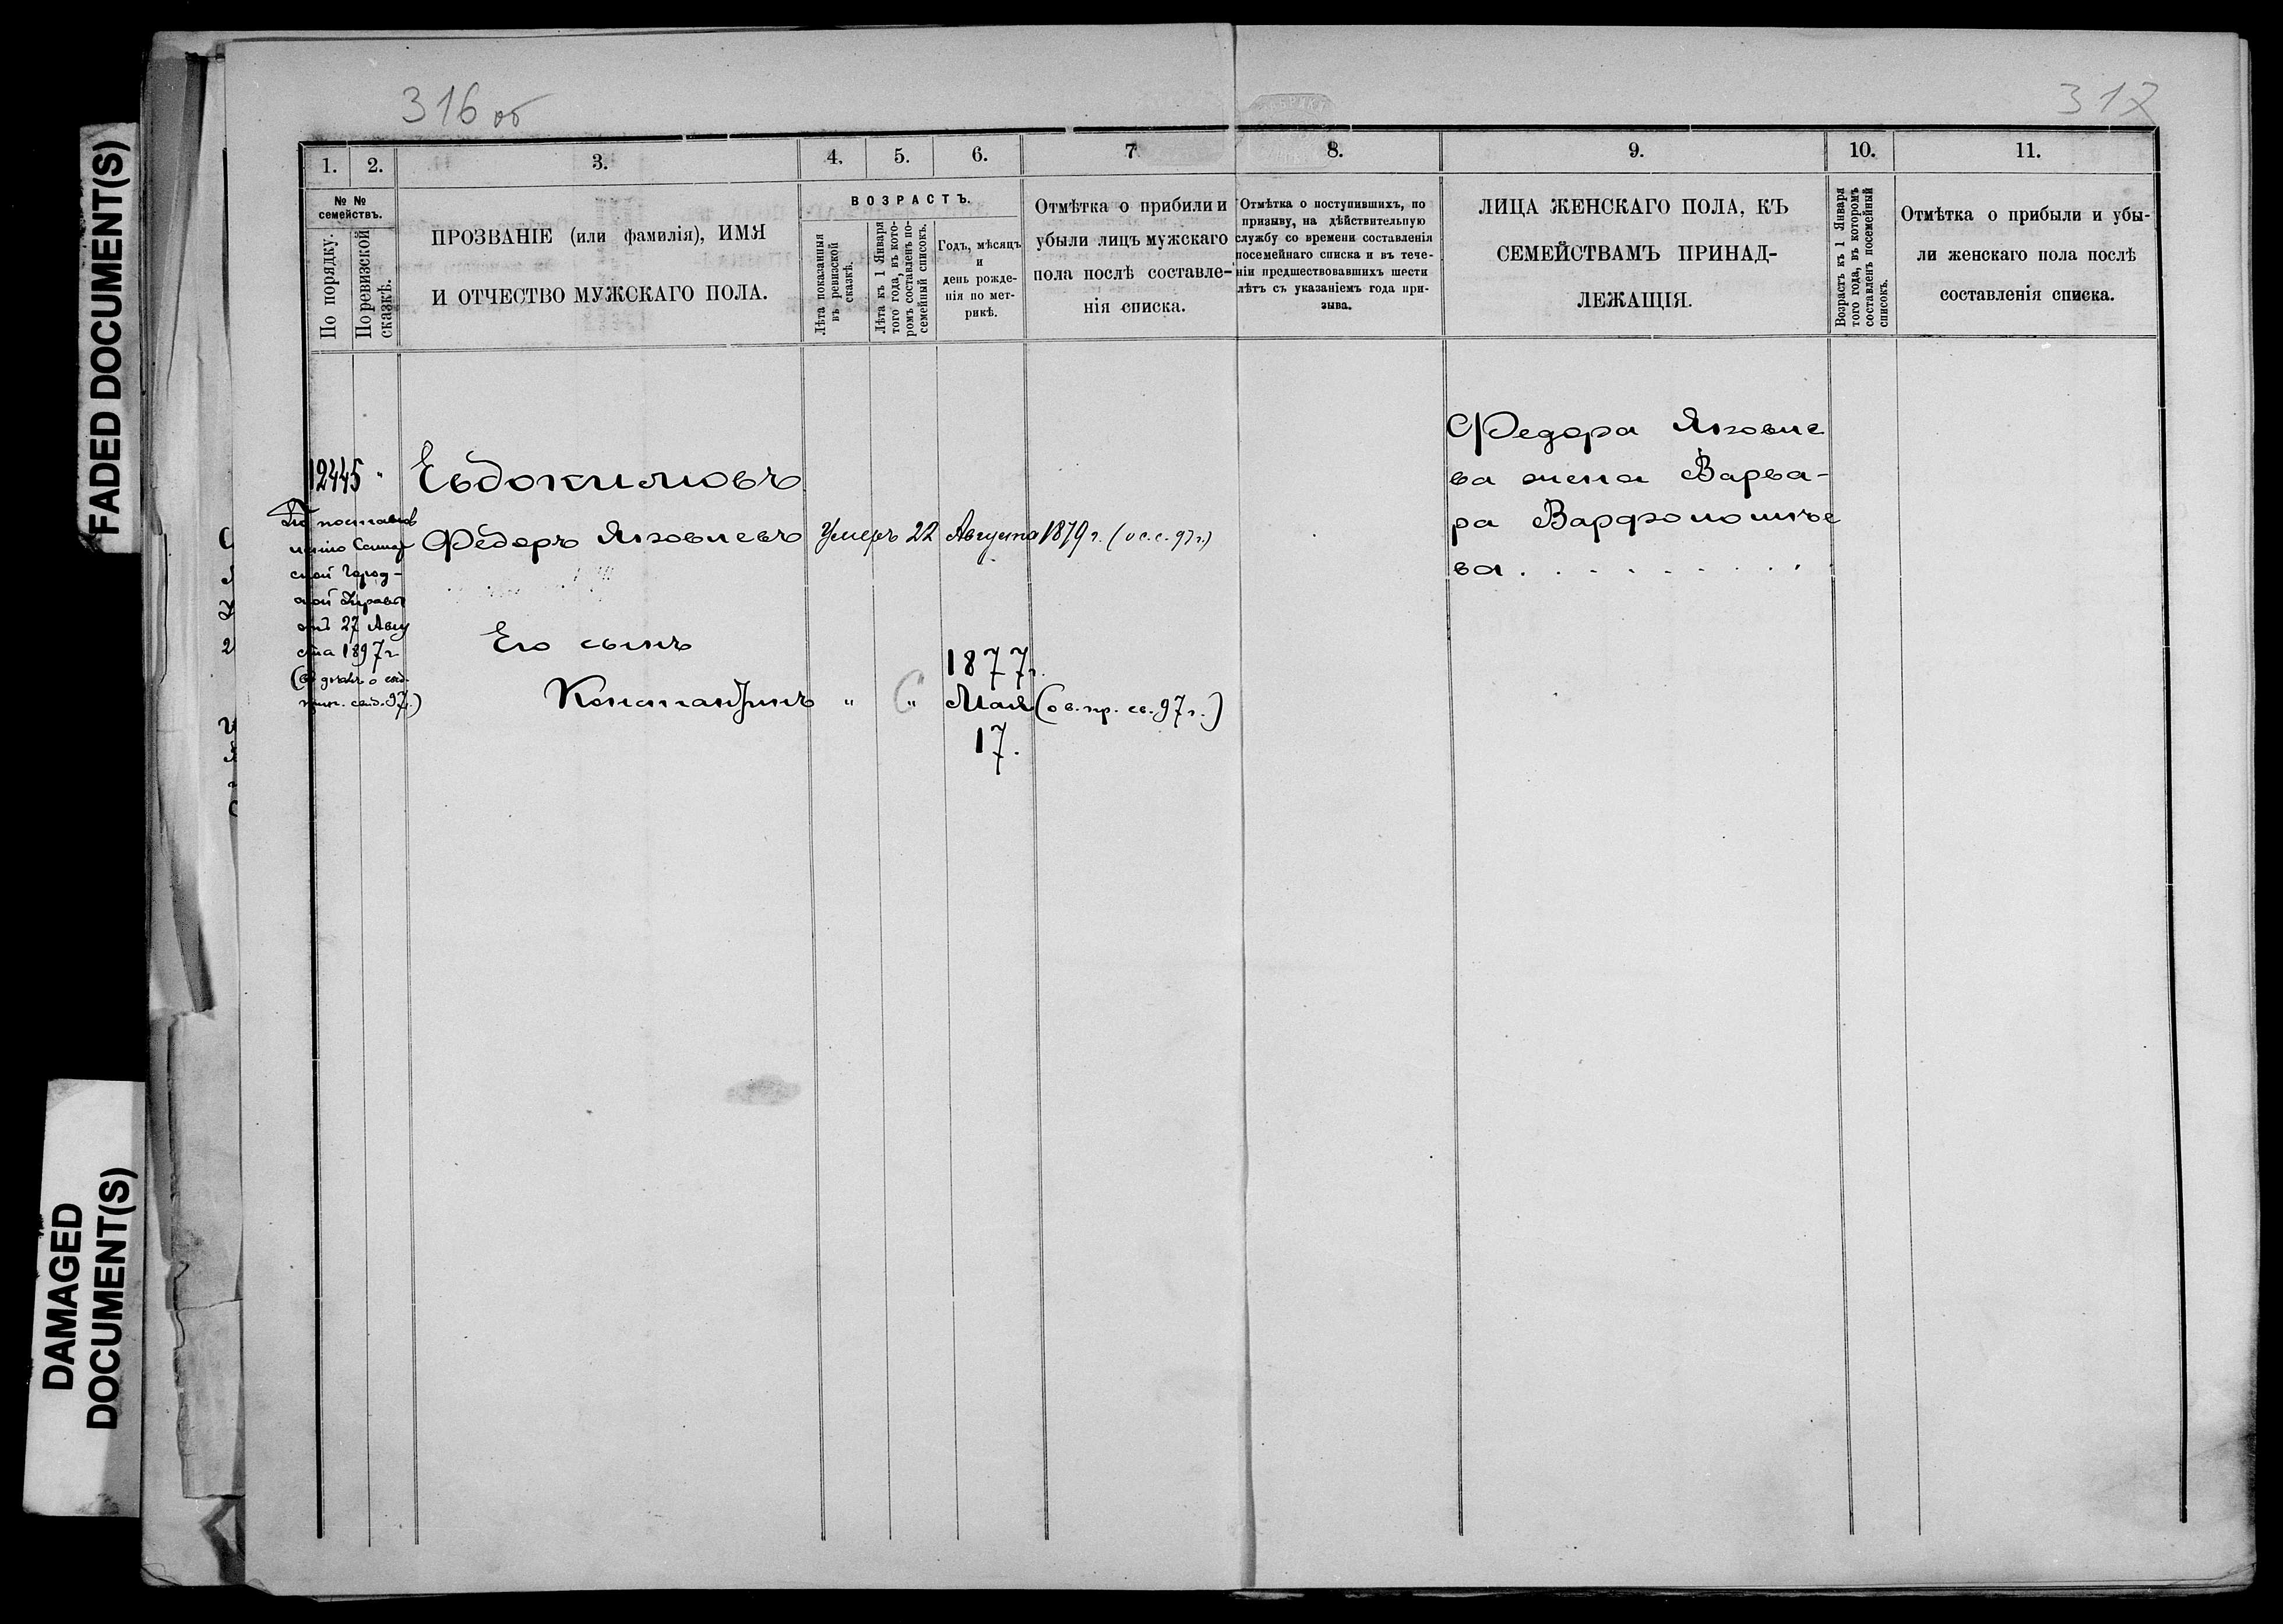 FADED DOCUMENT(S)
DAMAGED
DOCUMENT(S)
316 об
317
1.
2.
3.
4.
5.
6.
7
8.
9.
10.
11.
№ №
семействъ.
По порядку.
По ревизской
сказкѣ.
ПРОЗВАНІЕ (или фамилія), ИМЯ
И ОТЧЕСТВО МУЖСКАГО ПОЛА.
ВОЗРАСТЪ.
Лѣта показанныя
въ ревизской
сказкѣ.
Лѣта къ 1 Января
того года, въ кото-
ромъ составленъ по-
семейный списокъ.
Годъ, мѣсяцъ
и
день рожде-
нія по мет-
рикѣ.
Отмѣтка о прибили и
убыли лицъ мужскаго
пола послѣ составле-
нія списка.
Отмѣтка о поступившихъ, по
призыву, на дѣйствительную
службу со времени составленія
посемейнаго списка и въ тече-
ніи предшествовавшихъ шести
лѣтъ съ указаніемъ года при-
зыва.
ЛИЦА ЖЕНСКАГО ПОЛА, КЪ
СЕМЕЙСТВАМЪ ПРИНАД-
ЛЕЖАЩІЯ.
Возрастъ къ 1 Января
того года, въ которомъ
составленъ посемейный
списокъ.
Отмѣтка о прибыли и убы-
ли женскаго пола послѣ
составленія списка.
12445 "
По постанов
ской Город-
ской Управы
отъ 27 Авгу
ста 1897 г
Евдокимовъ
Ѳедоръ Яковлевъ Умеръ 22 Августа 1879 г. (о с. с. 97 г.)
Его сынъ
Константинъ " "
1877 г.
Мая (о в. пр. св. 97 г.)
17.
Федора Яковле
ва жена Варва-
ра Варфоломѣе
ва . . . . . . . . .